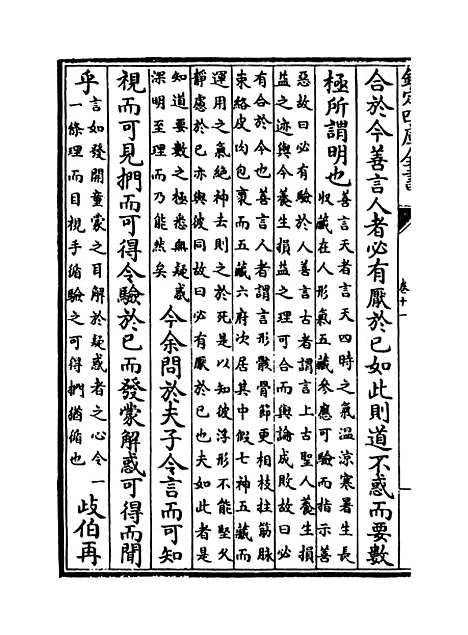 欽定四庫全書
卷十一
合於今善言人者必有厭於已如此則道不惑而要數
極所謂明也
善言天者言天四時之氣温涼寒暑生長
收藏在人形氣五藏參應可驗而指示善
惡故曰必有驗於人善言古者謂言上古聖人養生損
益之迹與今養生損益之理可合而與論成敗故曰必
有合於今也善言人者謂言形骸骨節更相枝拄筋脉
束絡皮肉包裹而五藏六府次居其中假七神五藏而
運用之氣絶神去則之於死是以知彼浮形不能堅久
靜慮於已亦與彼同故曰必有厭於已也夫如此者是
知道要數之極悉無疑惑
深明至理而乃能然矣
今余問於夫子令言而可知
視而可見捫而可得令驗於已而發蒙解惑可得而聞
乎
言如發開童蒙之目解於疑惑者之心令一
一條理而目視手循驗之可得捫猶循也
岐伯再